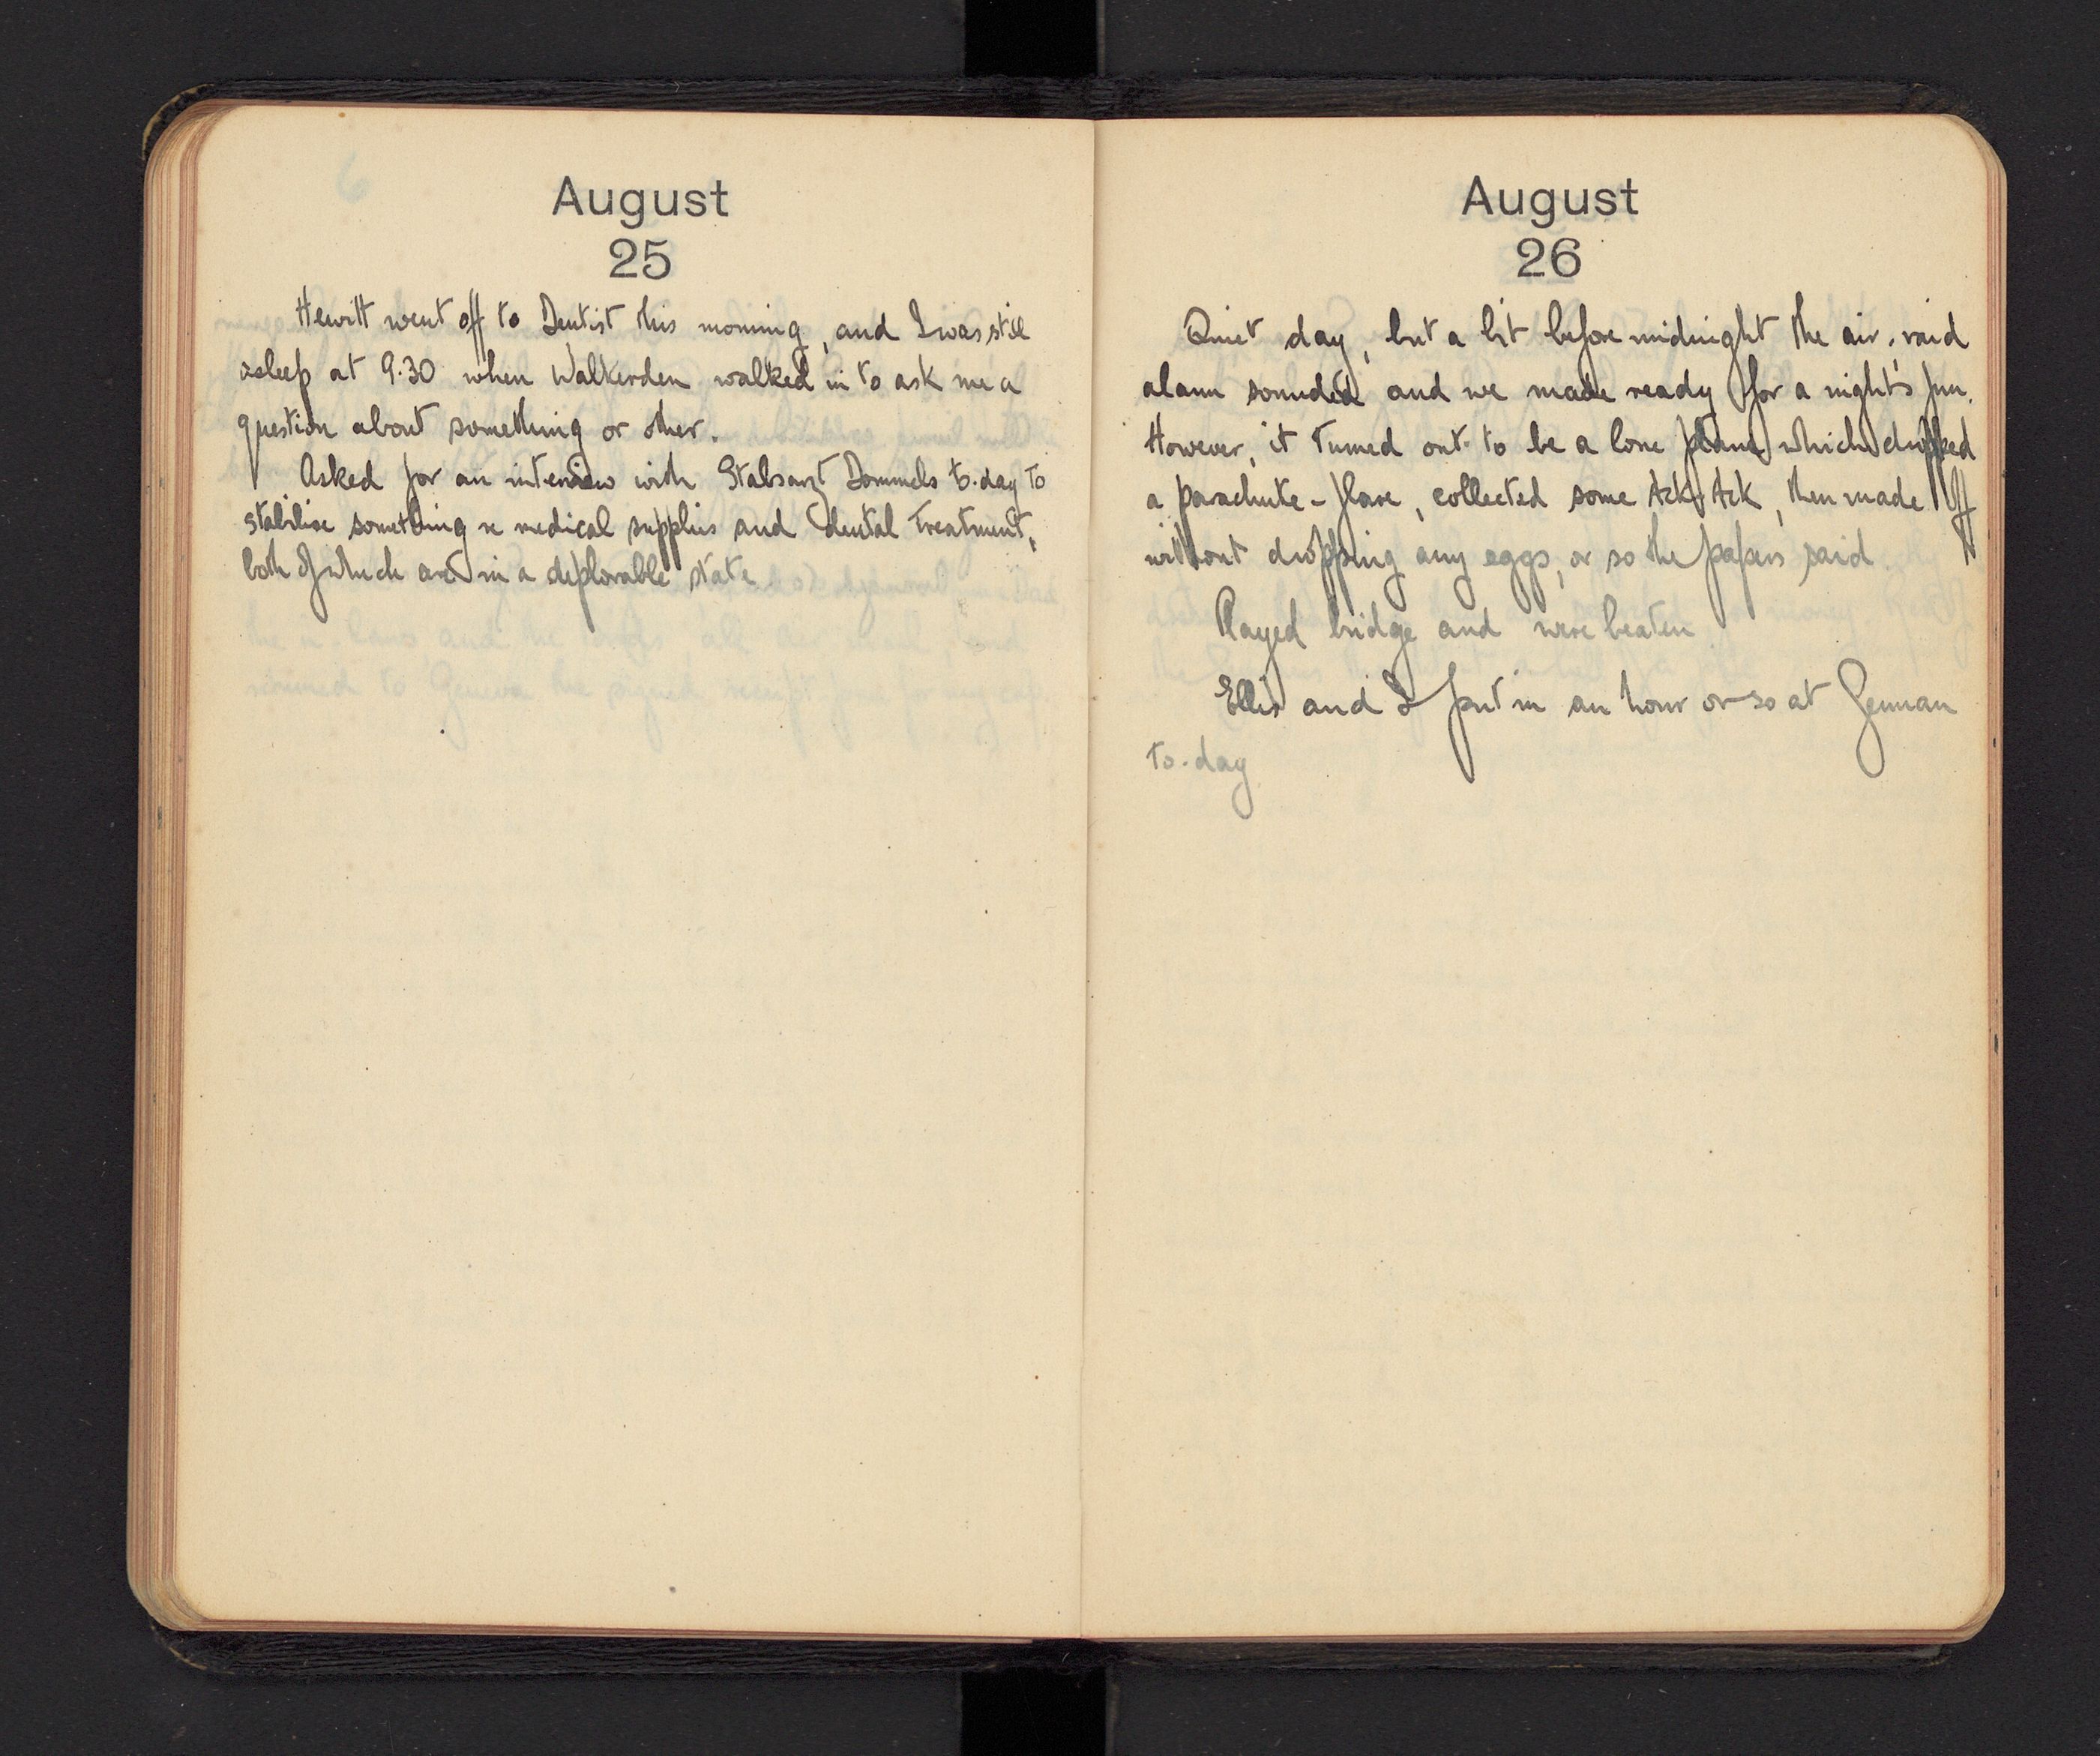 August
25
Hewitt went off to Dentist this morning, and I was still
asleep at 9.30 when Walkerden walked in to ask me a
question about something or other.
Asked for an interview with Stabsarzt Dommels to-day to
stabilise something re medical supplies and dental treatment,
both of which are in a deplorable state
August
26
Quiet day, but a bit before midnight the air-raid
alarm sounded and we made ready for a night's fun.
However, it turned out to be a lone plane which dropped
a parachute-flare, collected some Ack Ack, then made off
without dropping any eggs, or so the papers said
Played bridge and were beaten
Ellis and I put in an hour or so at German
to-day